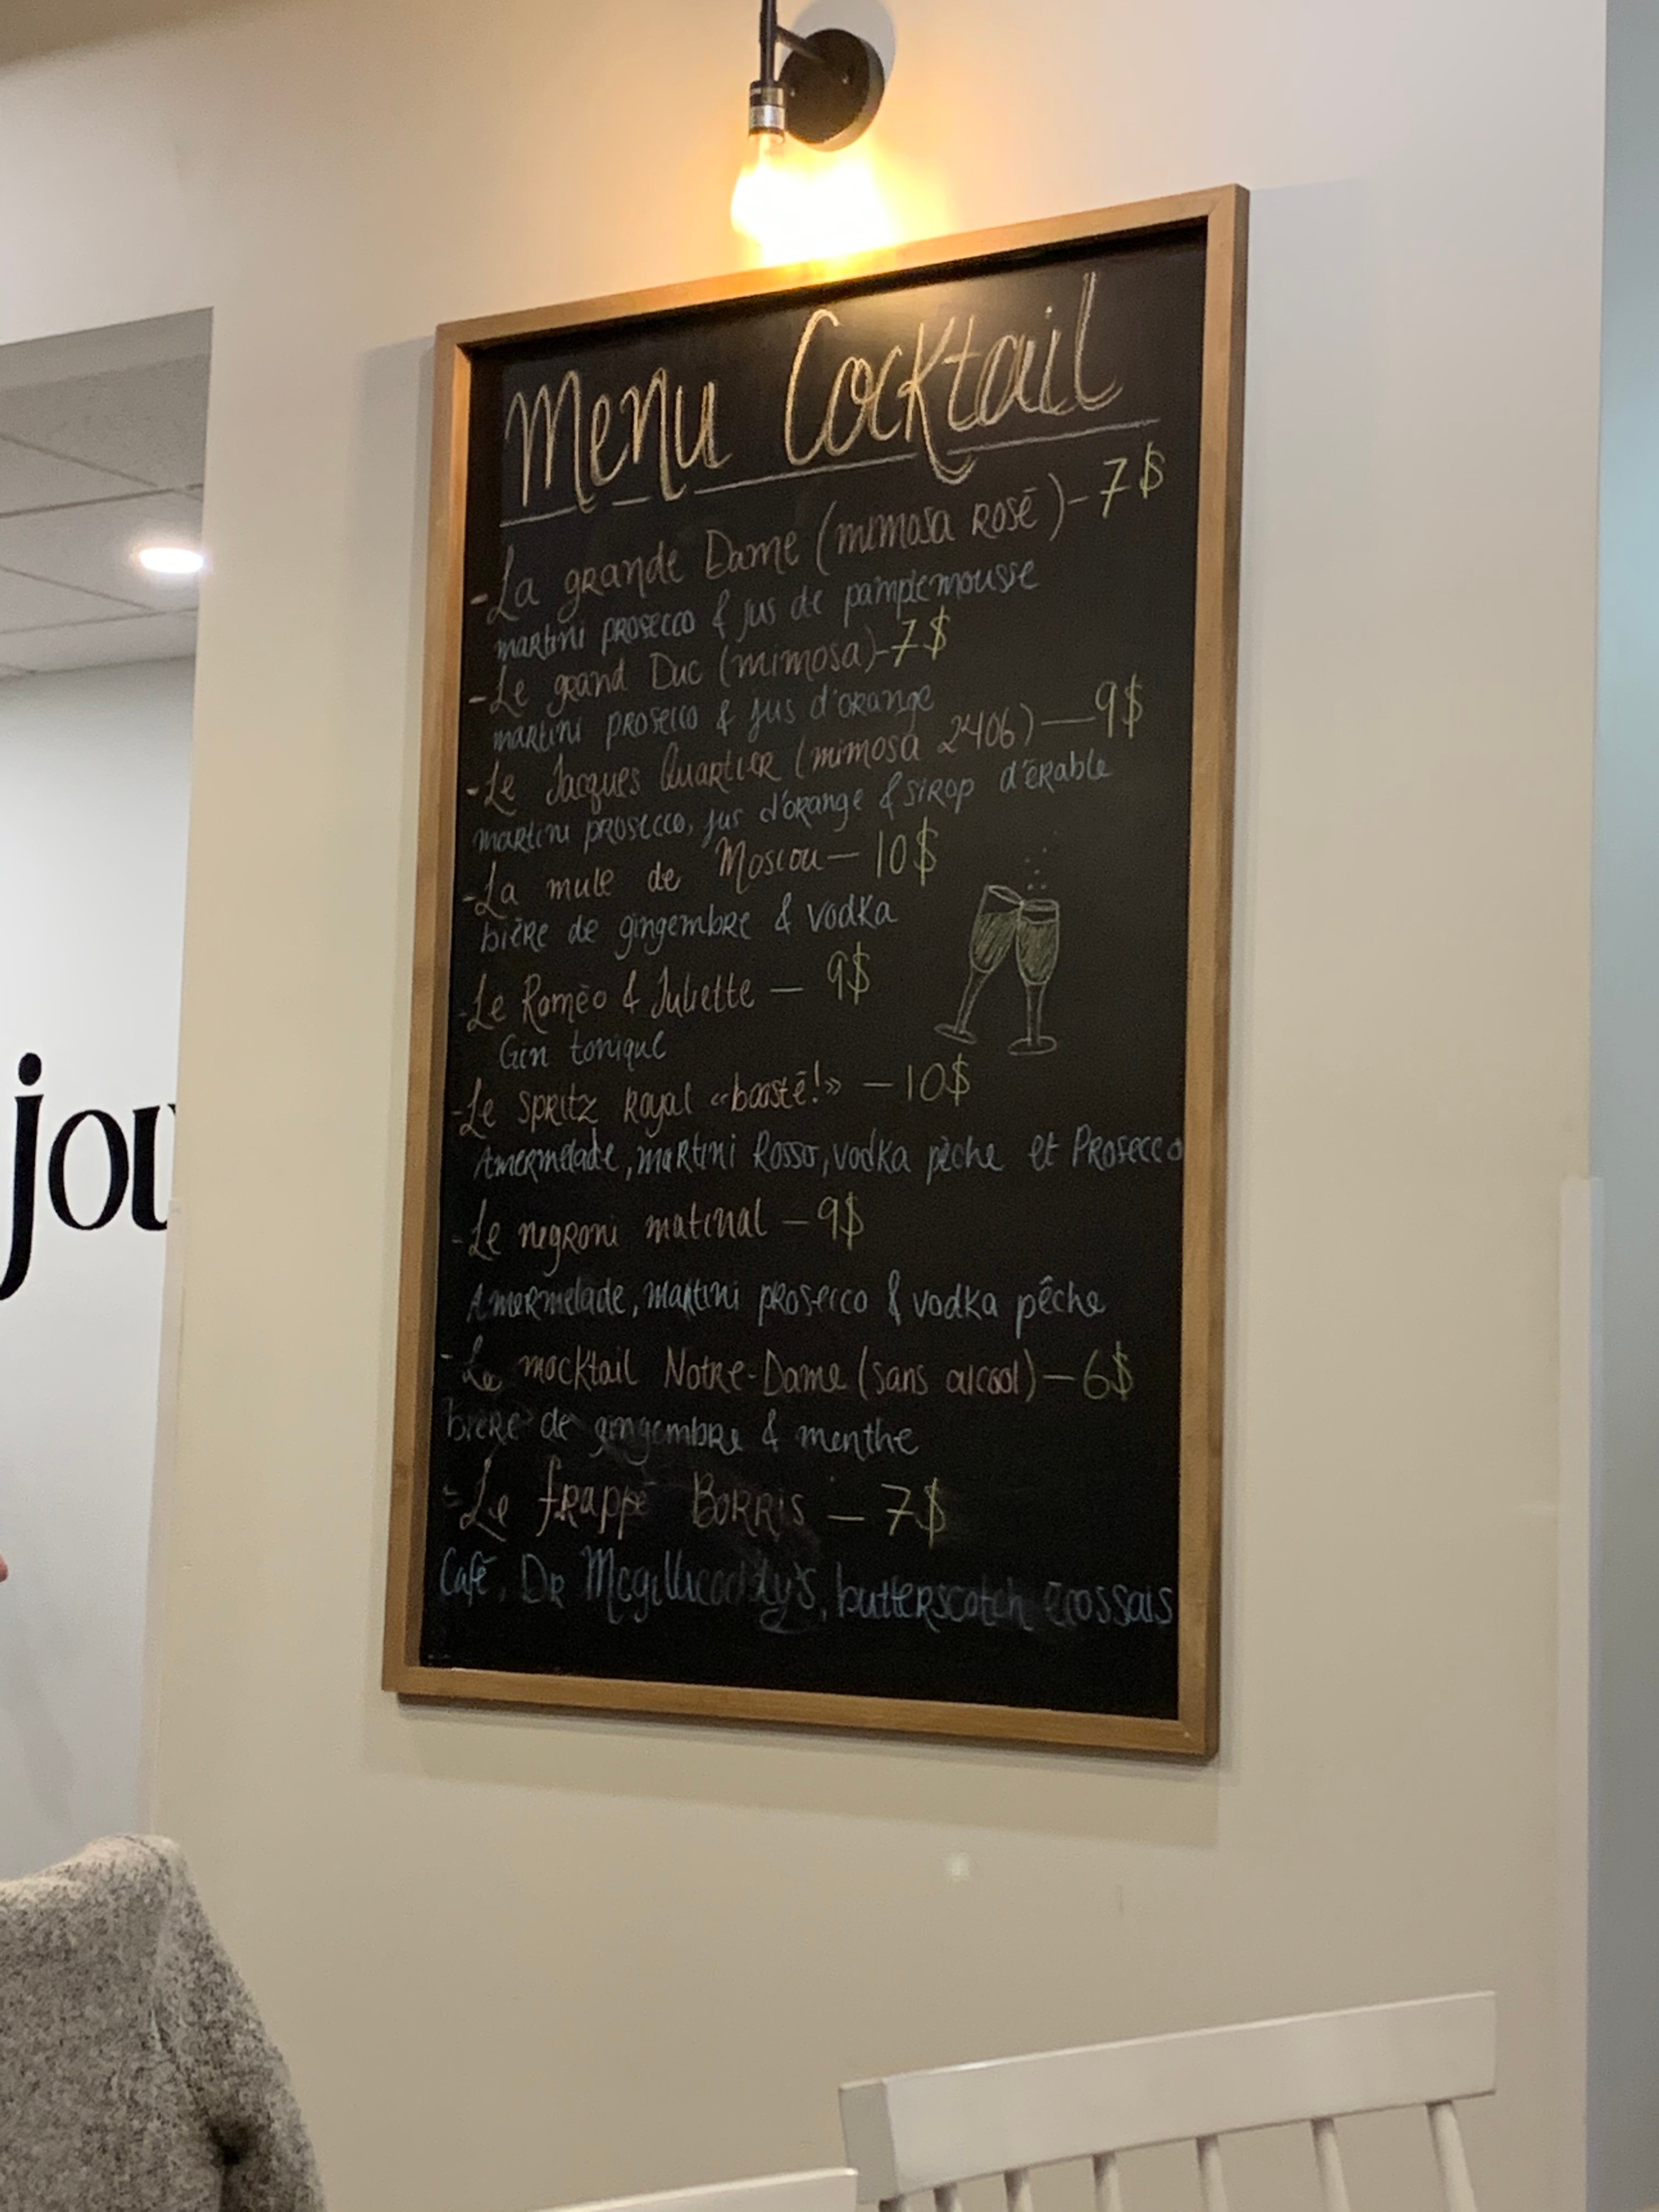 Menu Cocktail
-La grande Dame (mimosa rosé)-7$
martini prosecco & jus de pamplemousse
-Le grand Duc (mimosa)-7$
martini prosecco & jus d'orange
-Le Jacques Quartier (mimosa 2406)—9$
martini prosecco, jus d'orange & sirop d'érable
-La mule de Moscou—10$
bière de gingembre & vodka
-Le Roméo & Juliette — 9$
Gin tonique
-Le spritz Royal «boosté!» —10$
Amermelade, martini Rosso, vodka pêche et Prosecco
-Le negroni matinal —9$
Amermelade, martini prosecco & vodka pêche
-Le mocktail Notre-Dame (sans alcool)—6$
bière de gingembre & menthe
-Le frappé BORRIS — 7$
Café, Dr Mcgillicuddy's, butterscotch écossais
jou